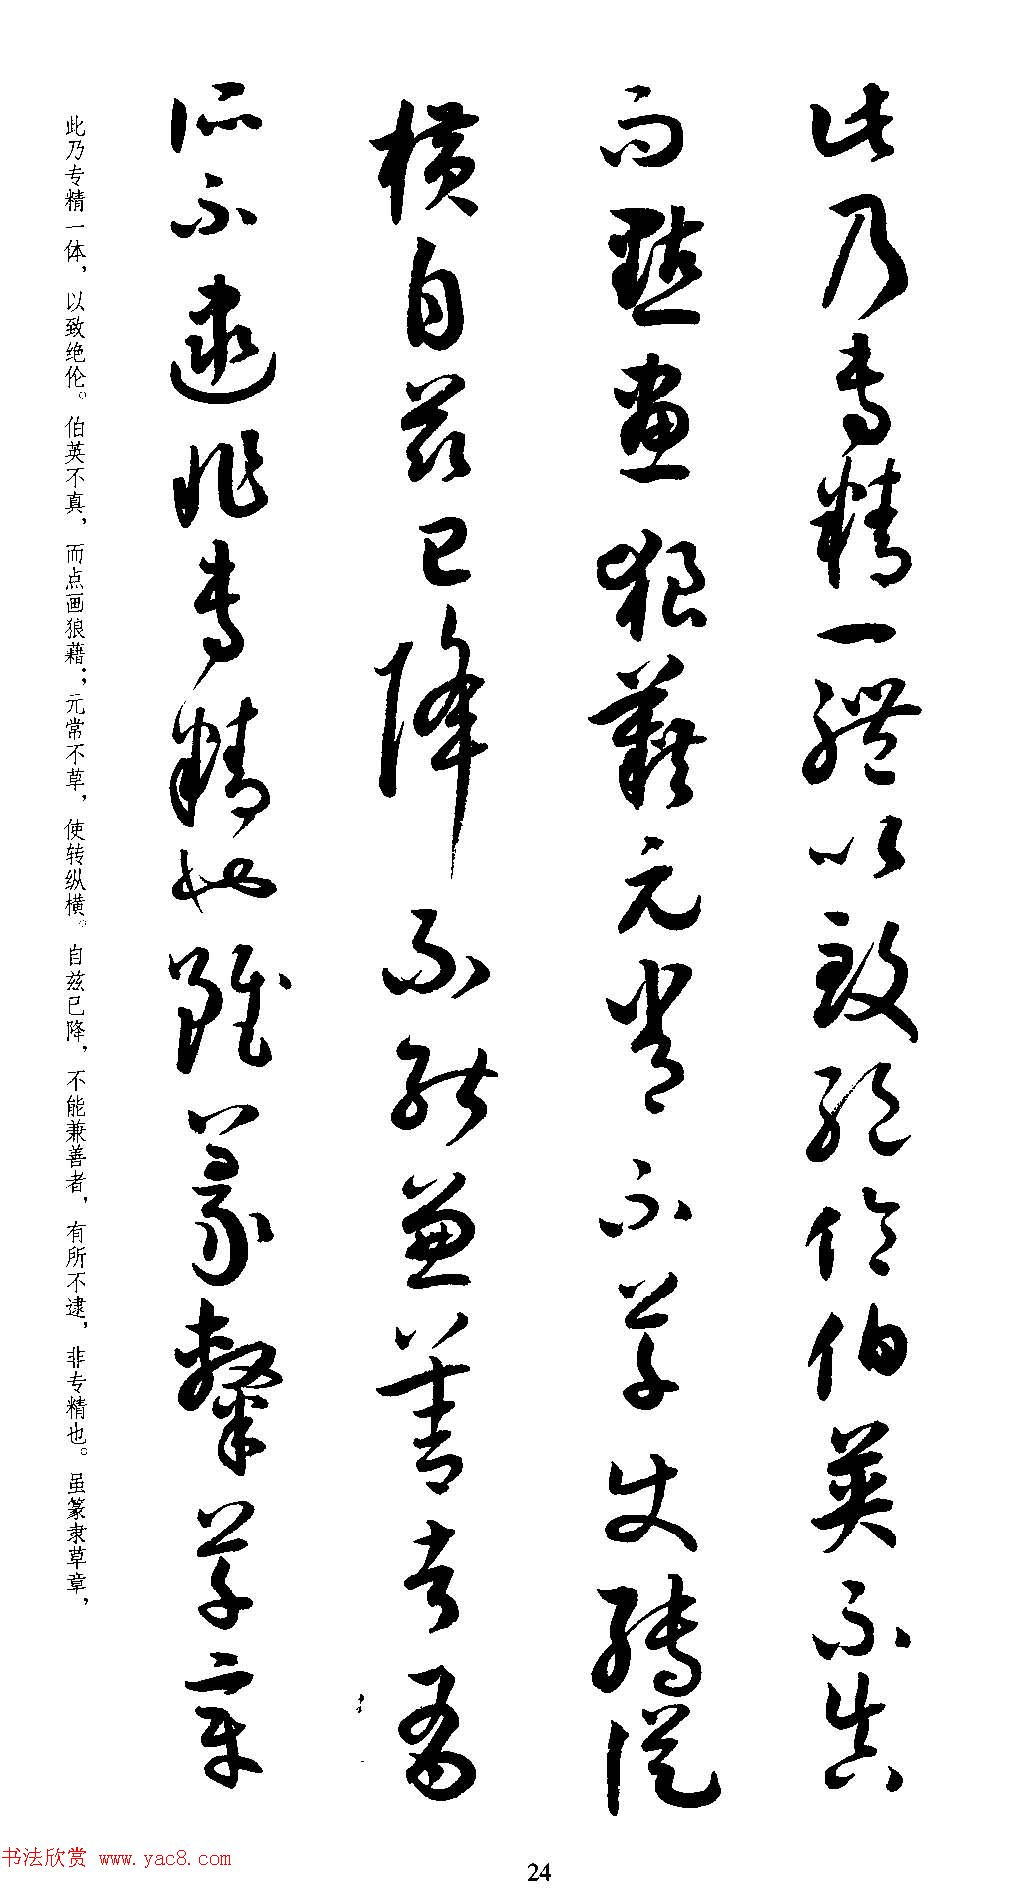 此乃專精一體以致絕倫伯英不真
而點畫狼藉元常不草使轉縱
橫自兹已降不能兼善者有
所不逮非專精也雖篆隸草章
此乃专精一体，以致绝伦。伯英不真，而点画狼藉；元常不草，使转纵横。自兹已降，不能兼善者，有所不逮，非专精也。虽篆隶草章，
书法欣赏 www.yac8.com
24